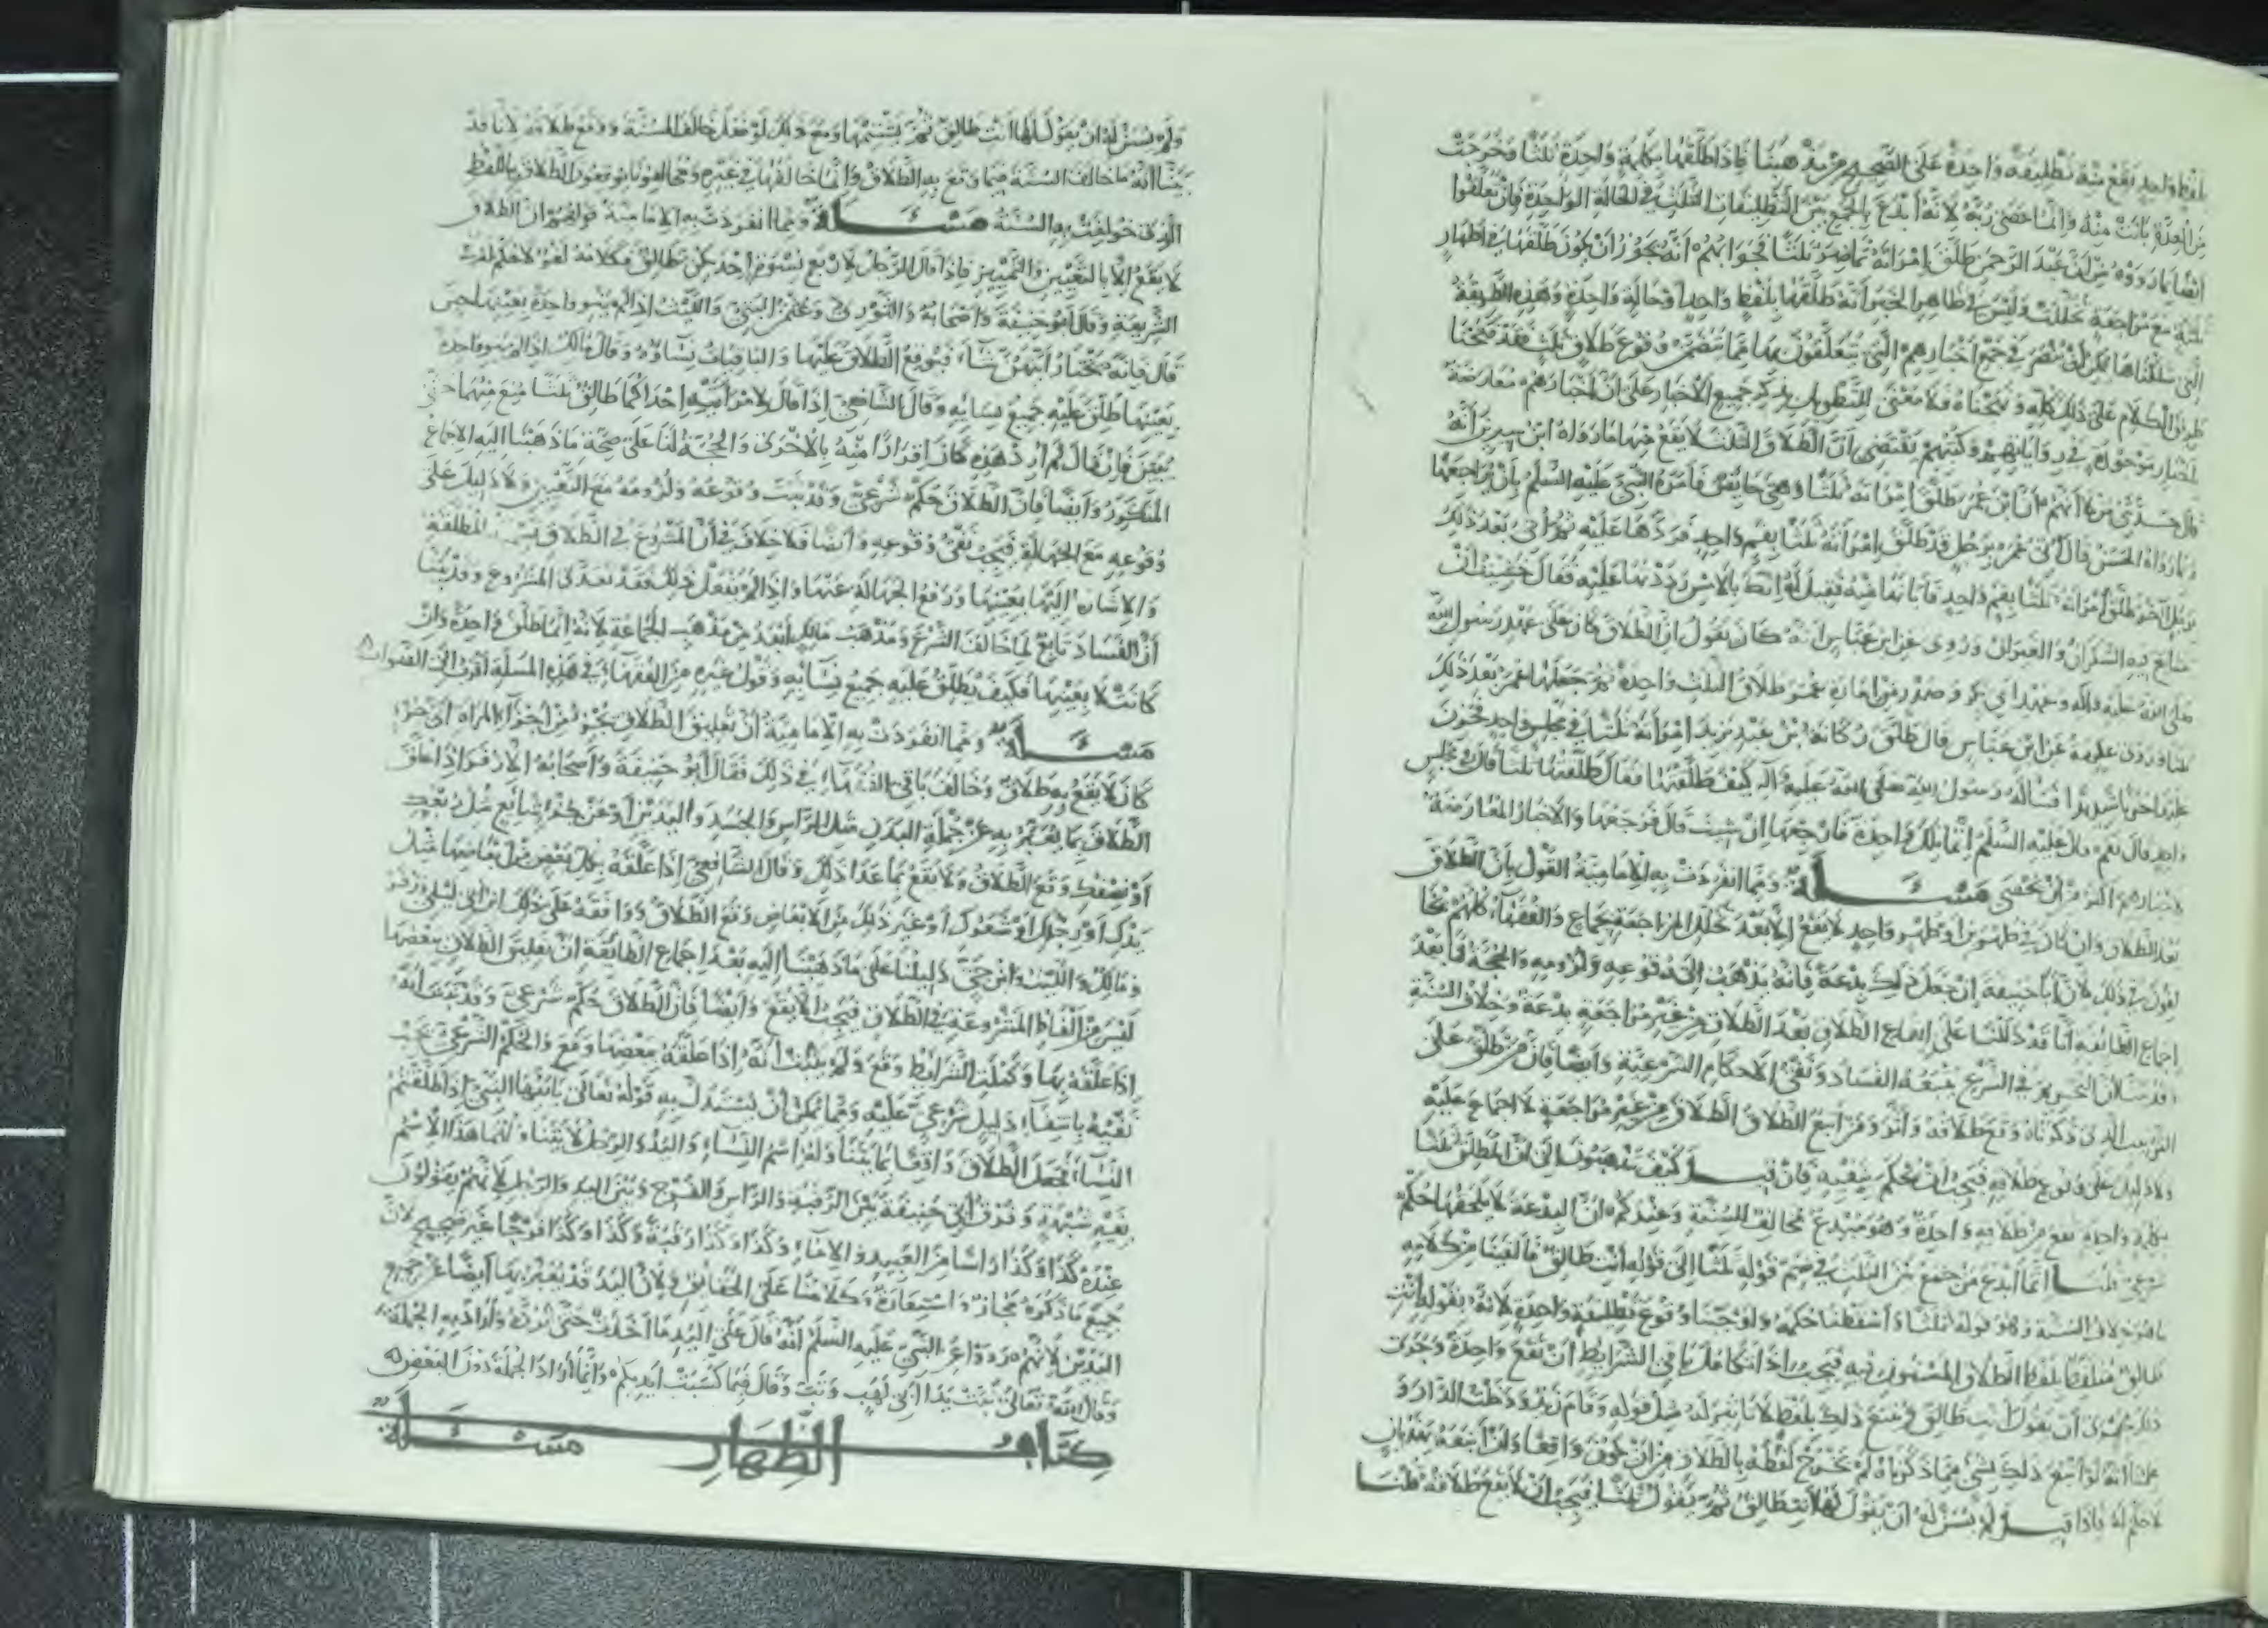 بلفظ واحد يقع منه تطليقة واحدة على الصحيح من مذهبنا فاذا طلقها بكلمة واحدة ثلثا وخرجت
من العدة بانت منه وانما عصى ربه لانه ابدع بالجمع بين التطليقات الثلث في الحالة الواحدة فان تعلقوا
ايضا بما رووه من ان عبد الرحمن طلق امراته تماضر ثلثا فجوابهم انه يجوز ان يكون طلقها في اطهار
ثلثة مع مراجعة تخللت وليس في ظاهر الخبر انه طلقها بلفظ واحد او حالة واحدة وهذه الطريقة
التي سلكناها يمكن ان تنصر في جميع اخبارهم التي يتعلقون بها مما تضمن وقوع طلاق ثلث فقد فتحنا
طريق الكلام على ذلك كله ونهجناه فلا معنى للتطويل بذكر جميع الاخبار على ان اخبارهم معارضة
باخبار موجودة في رواياتهم وكتبهم تقتضي ان الطلاق الثلث لا يقع منها ما رواه ابن سيرين انه
قال حدثني من لا اتهم ان ابن عمر طلق امراته ثلثا وهي حائض فامره النبي عليه السلم بان يراجعها
وبما رواه الحسن قال اتى عمر برجل قد طلق امراته ثلثا بفم واحد فردها عليه ثم اتى بعد ذلك
برجل اخر طلق امراته ثلثا بفم واحد فابانها منه فقيل له انك بالامس رددتها عليه فقال خشيت ان
يتتايع فيه السكران والغيران وروى عن ابن عباس انه كان يقول ان الطلاق كان على عهد رسول الله
صلى الله عليه واله وعهد ابي بكر وصدر من امارة عمر طلاق الثلث واحدة ثم جعلها عمر بعد ذلك
ثلثا وروى عكرمة عن ابن عباس قال طلق ركانة بن عبد يزيد امراته ثلثا في مجلس واحد فحزن
عليها حزنا شديدا فساله رسول الله صلى الله عليه واله كيف طلقتها فقال طلقتها ثلثا قال في مجلس
واحد قال نعم قال عليه السلم انما تلك واحدة فارجعها ان شئت قال فرجعها والاخبار المعارضة
لاخبارهم اكثر من ان تحصى مسئلة ومما انفردت به الامامية القول بان الطلاق
بعد الطلاق وان كان في طهرين او طهر واحد لا يقع الا بعد تخلل المراجعة بجماع والفقهاء كلهم يخا
لفون في ذلك لان ابا حنيفة ان جعل ذلك بدعة فانه يذهب الى وقوعه ولزومه والحجة لنا بعد
اجماع الطائفة انا قد دللنا على ان ايقاع الطلاق بعد الطلاق من غير مراجعة بدعة وخلاف السنة
وقد بينا ان التحريم في الشرع يتبعه الفساد ونفي الاحكام الشرعية وايضا فان من طلق على
الترتيب الذي ذكرناه وقع طلاقه واثر ومن اتبع الطلاق الطلاق من غير مراجعة لا اجماع عليه
ولا دليل على وقوع طلاقه فيجب ان نحكم بنفيه فان قيل كيف تذهبون الى ان المطلق ثلثا
بكلمة واحدة يقع من طلاقه واحدة وهو مبدع مخالف للسنة وعندكم ان البدعة لا يلحقها حكم
شرعي قلنا انما ابدع من جمع بين الثلث في ضم قوله ثلثا الى قوله انت طالق فالغينا من كلامه
ما هو خلاف السنة وهو قوله ثلثا واسقطنا حكمه واوجبنا وقوع تطليقة واحدة لانه بقوله انت
طالق متلفظ بلفظ الطلاق المسنون فيه فيجب اذا تكاملت باقي الشرايط ان تقع واحدة وجرت
ذلك مجرى ان يقول انت طالق ويتبع ذلك بلفظ لا تاثير له مثل قوله وقام زيد ودخلت الدار و
علمنا انه لو اتبع ذلك بشئ مما ذكرناه لم يخرج لفظه بالطلاق من ان يكون واقعا وان اتبعه بهذيان
لا حكم له فاذا قيل لم يسن له ان يقول لها انت طالق ثم يقول ثلثا فيجب ان لا يقع طلاقه قلنا
ولم يسن له ان يقول لها انت طالق ثم يشتمها ومع ذلك لو فعل خالف السنة ووقع طلاقه لانا قد
بينا انه ما خالف السنة فيما وقع به الطلاق وانما خالفها في غيره ومخالفونا يوقعون الطلاق باللفظ
الذي خولفت به السنة مسئلة ومما انفردت به الامامية قولهم ان الطلاق
لا يقع الا بالتعيين والتمييز فاذا قال الرجل لاربع نسوة احدكن طالق فكلامه لغو لا حكم له في
الشريعة وقال ابو حنيفة واصحابه والثوري وعثمن البتي والليث اذا لم ينو واحدة بعينها حين
قال فانه يختار ايتهن شاء فيوقع الطلاق عليها والباقيات نساؤه وقال مالك اذا لم ينو واحدة
بعينها طلق عليه جميع نسائه وقال الشافعي اذا قال لامراتيه احداكما طالق ثلثا منع منهما حتى
يبين فان قال لم ارد هذه كان اقرارا منه بالاخرى والحجة لنا على صحة ما ذهبنا اليه الاجماع
المتكرر وايضا فان الطلاق حكم شرعي وقد ثبت وقوعه ولزومه مع التعيين ولا دليل على
وقوعه مع الجهالة فيجب نفي وقوعه وايضا فلا خلاف في ان المشروع في الطلاق تسمية المطلقة
والاشارة اليها بعينها ورفع الجهالة عنها واذا لم يفعل ذلك فقد تعدى المشروع وقد بينا
ان الفساد تابع لما خالف الشرع ومذهب مالك ابعد من مذهب الجماعة لانه انما طلق واحدة وان
كانت لا بعينها فكيف يطلق عليه جميع نسائه وقول غيره من الفقهاء في هذه المسئلة اقرب الى الصواب
مسئلة ومما انفردت به الامامية ان تعليق الطلاق بجزء من اجزاء المراة اي جزء
كان لا يقع به طلاق وخالف باقي الفقهاء في ذلك فقال ابو حنيفة واصحابه الا زفر اذا علق
الطلاق بما يعبر به عن جملة البدن مثل الراس والجسد والبدن او عن جزء شايع مثل ربعك
او نصفك وقع الطلاق ولا يقع بما عدا ذلك وقال الشافعي اذا علقه بكل بعض من ابعاضها مثل
يدك او رجلك او شعرك او غير ذلك من الابعاض وقع الطلاق ووافقه على ذلك ابن ابي ليلى وزفر
ومالك والليث وابن حي دليلنا على ما ذهبنا اليه بعد اجماع الطائفة ان تعليق الطلاق ببعضها
ليس من الفاظ المشروعة في الطلاق فيجب الا يقع وايضا فان الطلاق حكم شرعي وقد ثبت انه
اذا علقه بها وكملت الشرايط وقع ولم يثبت انه اذا علقه ببعضها وقع والحكم الشرعي يجب
نفيه بانتفاء دليل شرعي عليه ومما يمكن ان يستدل به قوله تعالى يا ايها النبي اذا طلقتم
النساء فجعل الطلاق واقعا بما يتناوله اسم النساء واليد والرجل لا يتناولهما هذا الاسم
بغير شبهة وفرق ابي حنيفة بين الرقبة والراس والفرج وبين اليد والرجل لانهم يقولون
عنده كذا وكذا راسا من العبيد والاماء وكذا وكذا رقبة وكذا وكذا فرجا غير صحيح لان
جميع ما ذكره مجاز واستعارة وكلامنا على الحقائق ولان اليد قد يعبر بها ايضا عن جميع
البدن لانهم رووا عن النبي عليه السلم انه قال على اليد ما اخذت حتى تردّه واراد به الجملة
وقال الله تعالى تبت يدا ابي لهب وتب وقال فيما كسبت ايديكم وانما اراد الجملة دون البعض
كتاب الظهار مسئلة